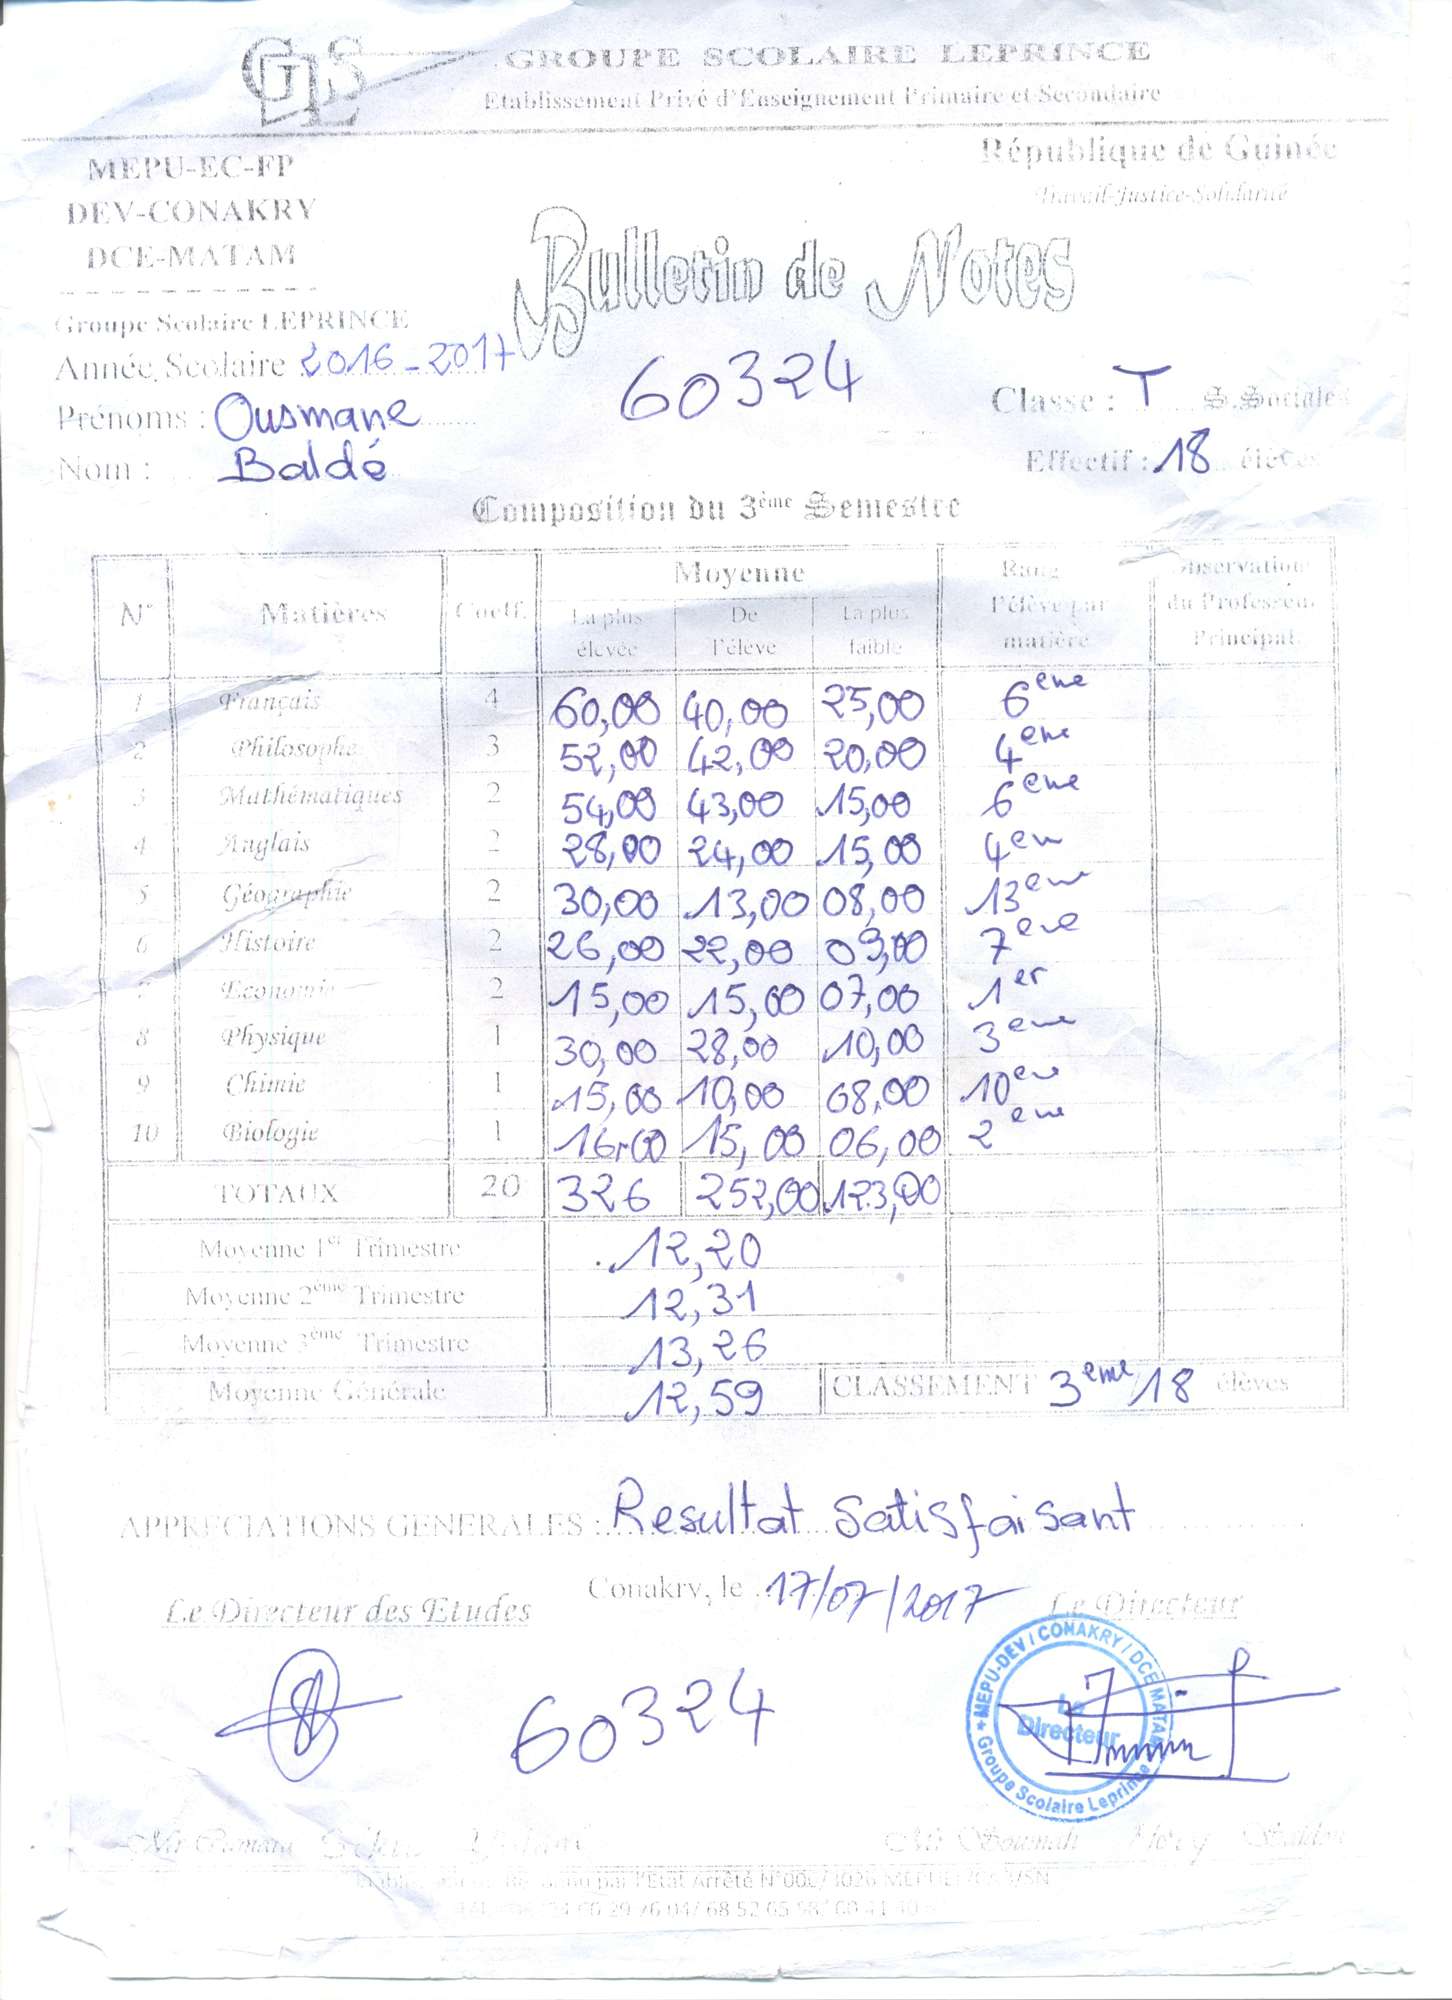 GLS
GROUPE SCOLAIRE LEPRINCE
Etablissement Privé d'Enseignement Primaire et Secondaire
MEPU-EC-FP
DEV-CONAKRY
DCE-MATAM
République de Guinée
Travail-Justice-Solidarité
Bulletin de Notes
Groupe Scolaire LEPRINCE
Année Scolaire 2016-2017
60324
Prénoms : Ousmane
Classe : T S.Sociales
Nom : Baldé
Effectif : 18 élèves
Composition du 3ème Semestre
N° Matières Coeff. Moyenne Rang l'élève par matière Observation du Professeur Principal
La plus élevée De l'élève La plus faible
1 Français 4 60,00 40,00 25,00 6eme
2 Philosophe 3 52,00 42,00 20,00 4eme
3 Mathématiques 2 54,00 43,00 15,00 6eme
4 Anglais 2 28,00 24,00 15,00 4em
5 Géographie 2 30,00 13,00 08,00 13eme
6 Histoire 2 26,00 22,00 09,00 7eme
7 Economie 2 15,00 15,00 07,00 1er
8 Physique 1 30,00 28,00 10,00 3eme
9 Chimie 1 15,00 10,00 08,00 10eme
10 Biologie 1 16,00 15,00 06,00 2eme
TOTAUX 20 326 252,00 123,00
Moyenne 1er Trimestre 12,20
Moyenne 2ème Trimestre 12,31
Moyenne 3ème Trimestre 13,26
Moyenne Générale 12,59 CLASSEMENT 3eme/18 élèves
APPRECIATIONS GENERALES : Resultat satisfaisant
Conakry, le 17/07/2017
Le Directeur des Etudes
Le Directeur
60324
MEPU-DEV / CONAKRY / DCE MATAM
Le Directeur
Groupe Scolaire Leprince
Mr Camara
Mr Soumah
par l'Etat Arrêté